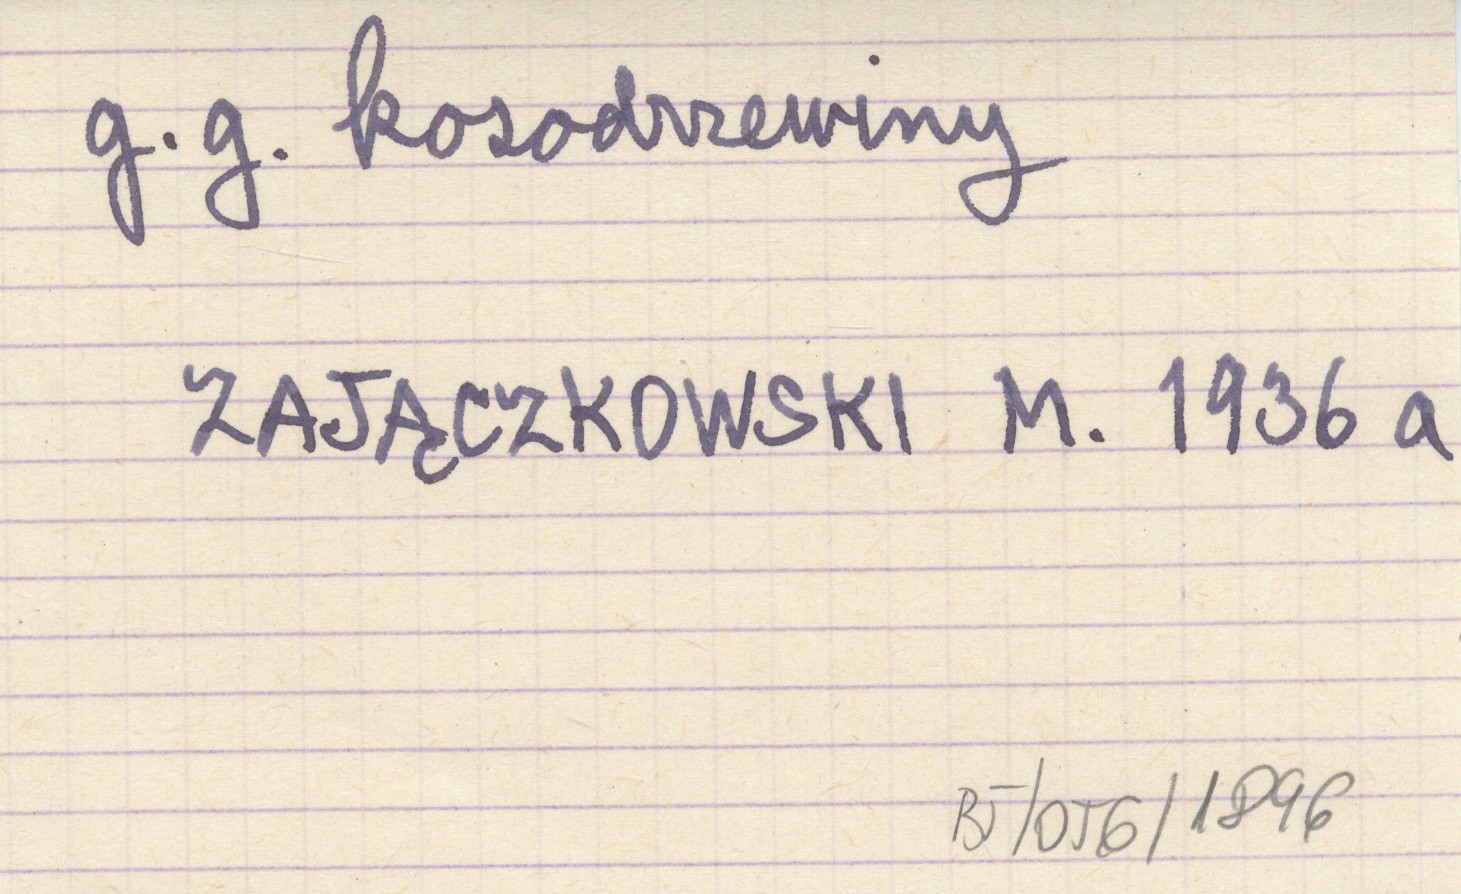 g.g. kosodrzewiny
ZAJĄCZKOWSKI M. 1936 a
BJ/OJG/1896